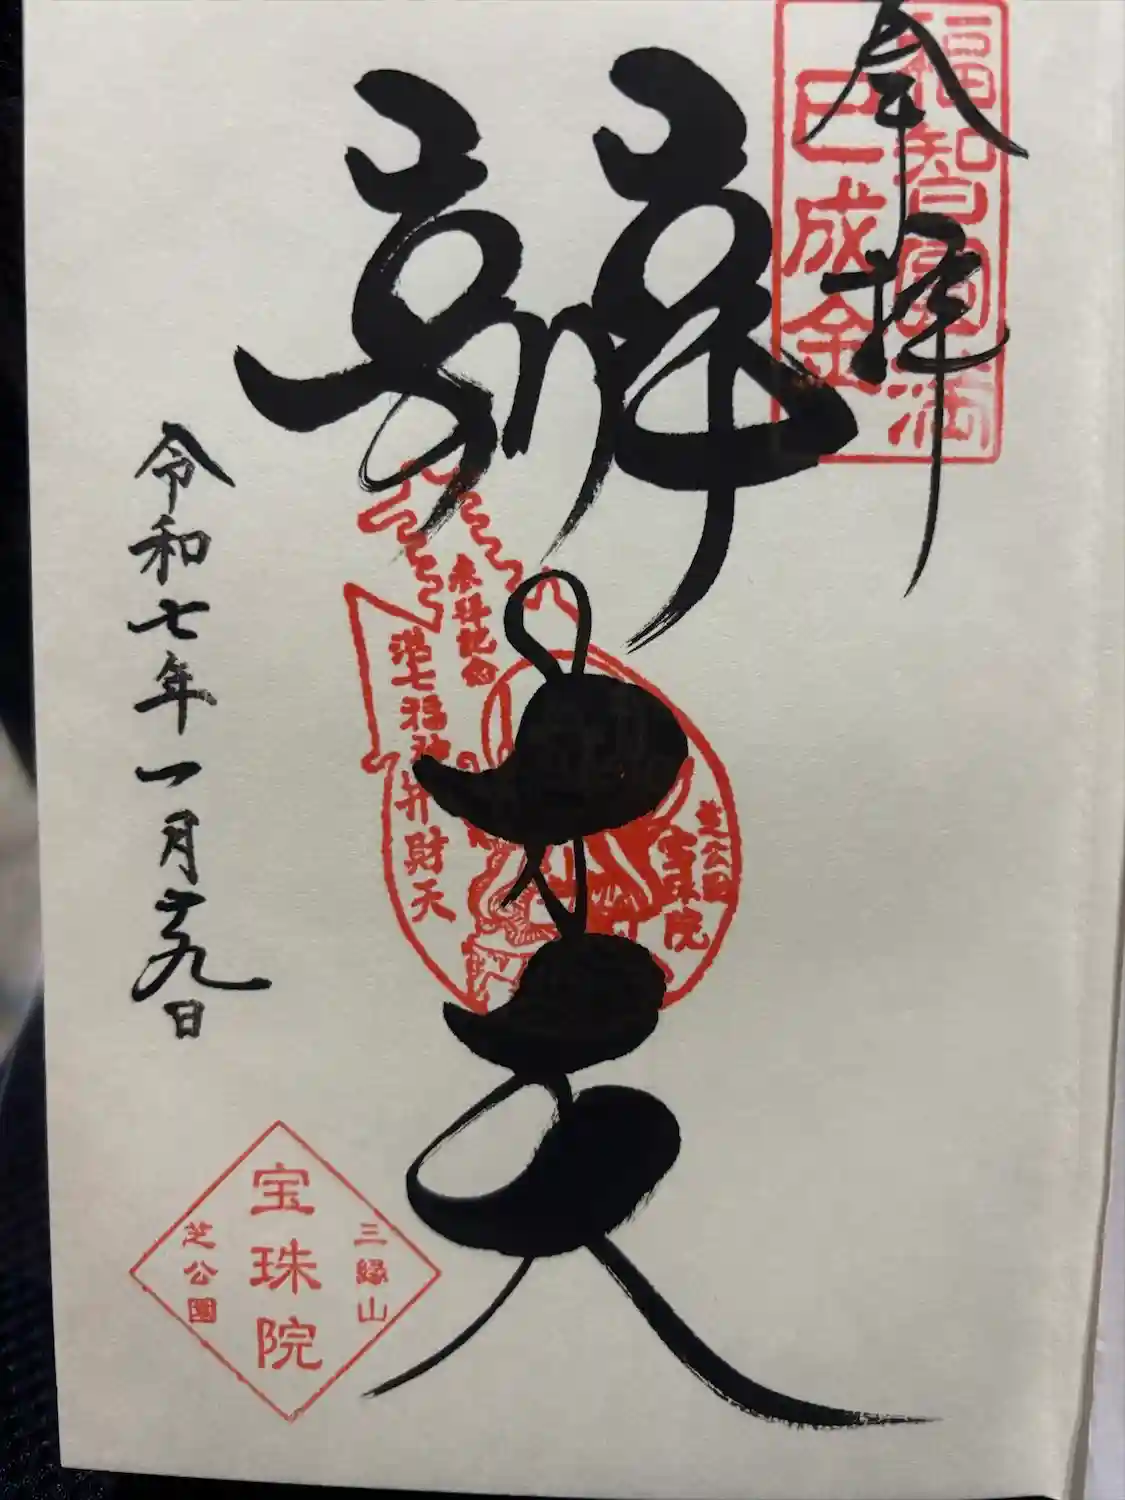 奉拝
福智圓満
巳成金
辨才天
参拝記念
港七福神
弁財天
芝公園
宝珠院
令和七年一月十九日
三縁山
宝珠院
芝公園